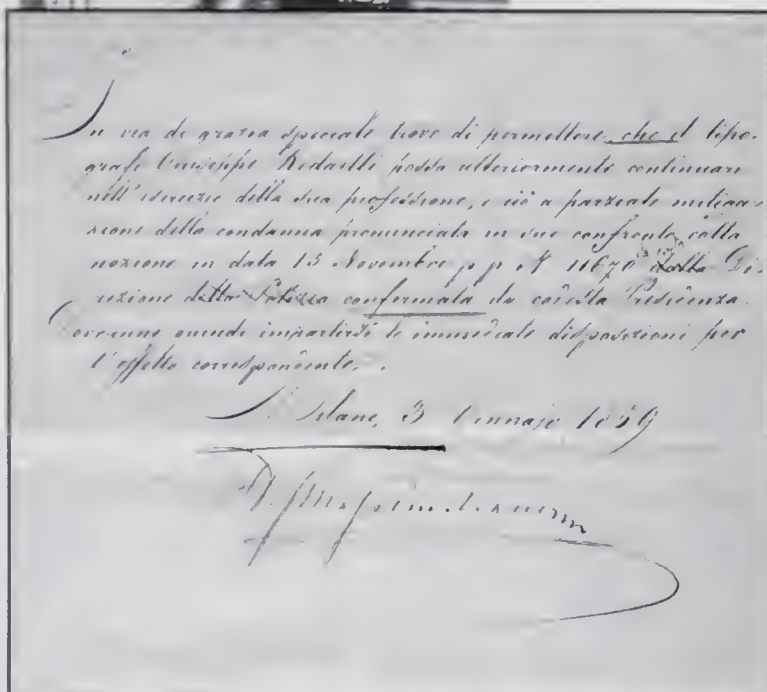 In via di grazia speciale trovo di permettere che il tipo-
grafo Giuseppe Redaelli possa ulteriormente continuare
nell'esercizio della sua professione, e ciò a parziale mitiga-
zione della condanna pronunciata in suo confronto colla
nozione in data 15 Novembre p. p. N. 11670 dalla Di-
rezione della Polizia confermata da codesta Presidenza.
Verranno quindi impartirsi le immediate disposizioni per
l'effetto corrispondente.
Milano, 3 Gennajo 1859